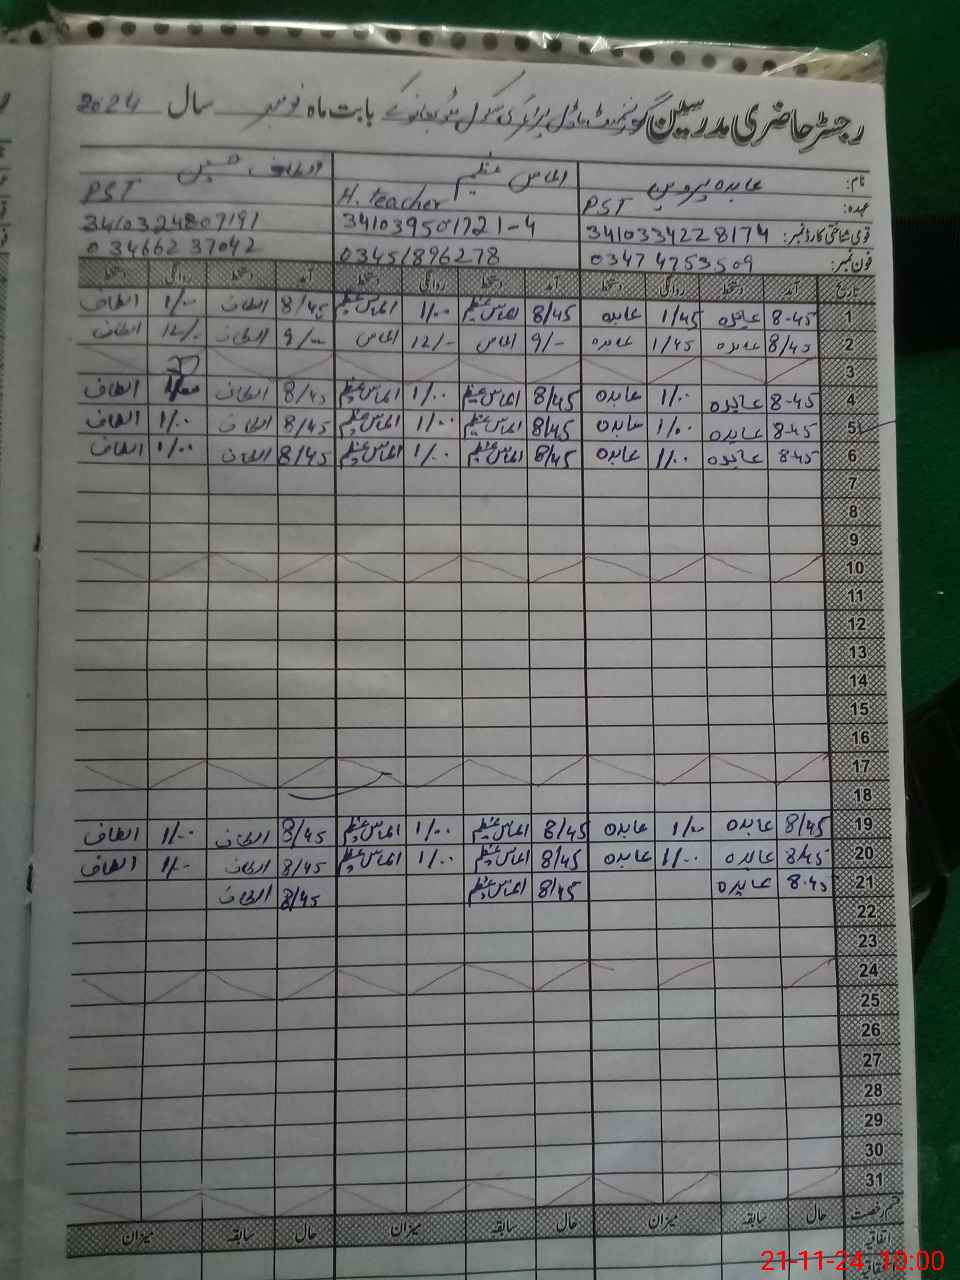 رجسٹر حاضری مدرسین گورنمنٹ ماڈل پرائمری سکول بابت ماہ نومبر سال 2024
نام: عابدہ پروین الماس عظیم الطاف حسین
عہدہ: PST H. teacher PST
قومی شناختی کارڈ نمبر: 3410334228174 341039501721-4 3410324807191
فون نمبر: 03474753509 03451896278 03466237042
تاریخ آمد دستخط روانگی دستخط آمد دستخط روانگی دستخط آمد دستخط روانگی دستخط
1 8-45 عابدہ 1/45 عابدہ 8/45 الماس عظیم 1/00 الماس عظیم 8/45 الطاف 1/00 الطاف
2 8/45 عابدہ 1/45 عابدہ 9/- الماس 12/- الماس 9/00 الطاف 12/0 الطاف
3
4 8-45 عابدہ 1/00 عابدہ 8/45 الماس عظیم 1/00 الماس عظیم 8/45 الطاف الطاف
5 8-45 عابدہ 1/00 عابدہ 8/45 الماس عظیم 1/00 الماس عظیم 8/45 الطاف 1/00 الطاف
6 8-45 عابدہ 1/00 عابدہ 8/45 الماس عظیم 1/00 الماس عظیم 8/45 الطاف 1/00 الطاف
7
8
9
10
11
12
13
14
15
16
17
18
19 8/45 عابدہ 1/00 عابدہ 8/45 الماس عظیم 1/00 الماس عظیم 8/45 الطاف 1/00 الطاف
20 8/45 عابدہ 1/00 عابدہ 8/45 الماس عظیم 1/00 الماس عظیم 8/45 الطاف 1/- الطاف
21 8-45 عابدہ 8/45 الماس عظیم 8/45 الطاف
22
23
24
25
26
27
28
29
30
31
قسم رخصت حال سابقہ میزان حال سابقہ میزان حال سابقہ میزان
اتفاقیہ
21-11-24 10:00